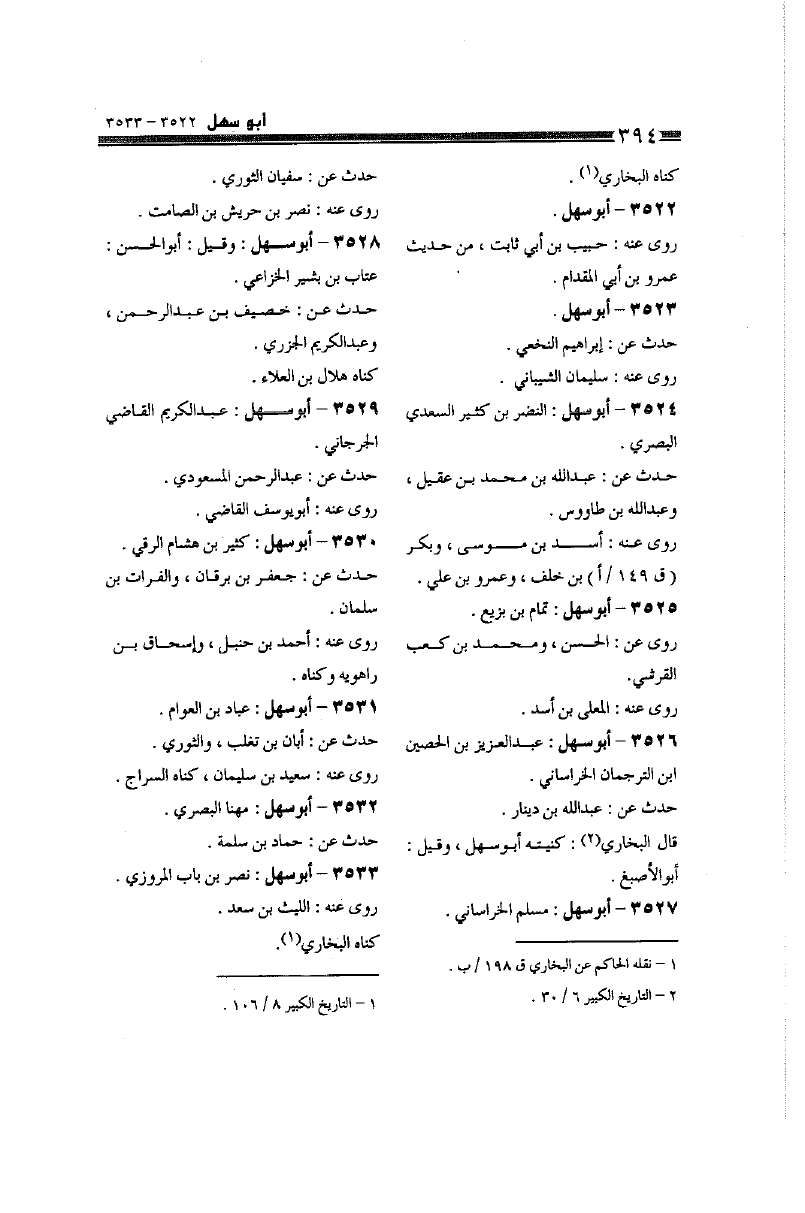 ٣٩٤
أبو سهل ٣٥٢٢ - ٣٥٣٣
كناه البخاري(١) .
٣٥٢٢ - أبوسهل .
روى عنه : حبيب بن أبي ثابت ، من حديث
عمرو بن أبي المقدام .
٣٥٢٣ - أبوسهل .
حدث عن : إبراهيم النخعي .
روى عنه : سليمان الشيباني .
٣٥٢٤ - أبوسهل : النضر بن كثير السعدي
البصري .
حدث عن : عبدالله بن محمد بن عقيل ،
وعبدالله بن طاووس .
روى عنه : أسد بن موسى ، وبكر
( ق ١٤٩ / أ ) بن خلف ، وعمرو بن علي .
٣٥٢٥ - أبوسهل : تمام بن بزيع .
روى عن : الحسن ، ومحمد بن كعب
القرشي.
روى عنه : المعلى بن أسد .
٣٥٢٦ - أبوسهل : عبدالعزيز بن الحصين
ابن الترجمان الخراساني .
حدث عن : عبدالله بن دينار .
قال البخاري(٢) : كنيته أبوسهل ، وقيل :
أبوالأصبغ .
٣٥٢٧ - أبوسهل : مسلم الخراساني .
١ - نقله الحاكم عن البخاري ق ١٩٨ / ب .
٢ - التاريخ الكبير ٦ / ٣٠ .
حدث عن : سفيان الثوري .
روى عنه : نصر بن حريش بن الصامت .
٣٥٢٨ - أبوسهل : وقيل : أبوالحسن :
عتاب بن بشير الخزاعي .
حدث عن : خصيف بن عبدالرحمن ،
وعبدالكريم الجزري .
كناه هلال بن العلاء .
٣٥٢٩ - أبوسهل : عبدالكريم القاضي
الجرجاني .
حدث عن : عبدالرحمن المسعودي .
روى عنه : أبويوسف القاضي .
٣٥٣٠ - أبوسهل : كثير بن هشام الرقي .
حدث عن : جعفر بن برقان ، والفرات بن
سلمان .
روى عنه : أحمد بن حنبل ، وإسحاق بن
راهويه وكناه .
٣٥٣١ - أبوسهل : عباد بن العوام .
حدث عن : أبان بن تغلب ، والثوري .
روى عنه : سعيد بن سليمان ، كناه السراج .
٣٥٣٢ - أبوسهل : مهنا البصري .
حدث عن : حماد بن سلمة .
٣٥٣٣ - أبوسهل : نصر بن باب المروزي .
روى عنه : الليث بن سعد .
كناه البخاري(١).
١ - التاريخ الكبير ٨ / ١٠٦ .